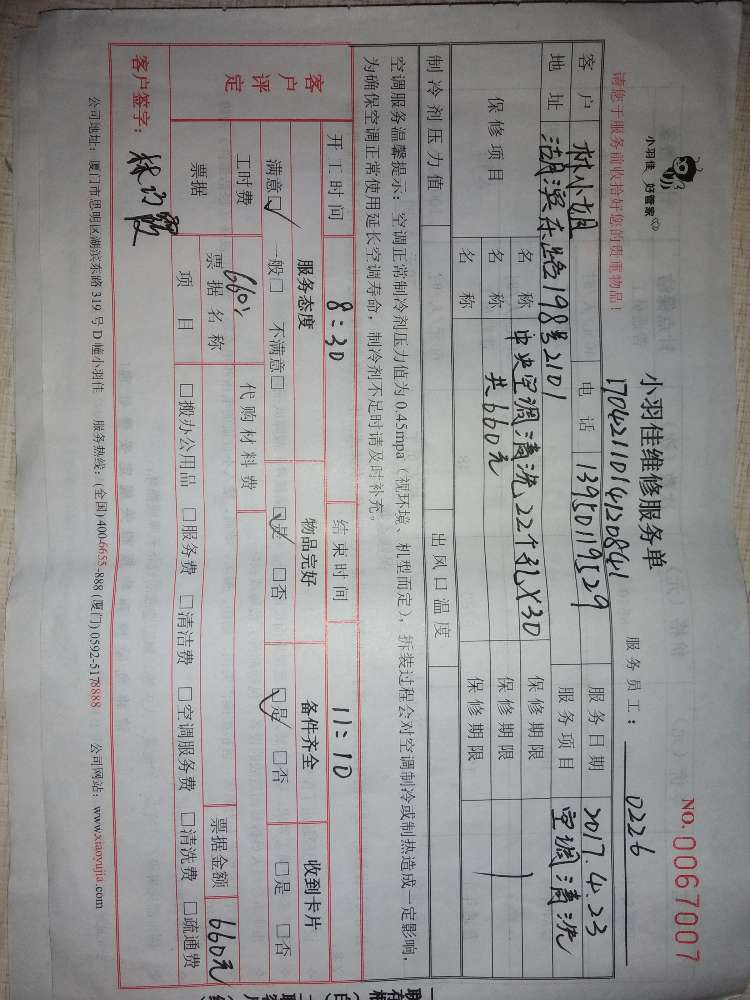 小羽佳 好管家
请您于服务前收拾好您的贵重物品!
小羽佳维修服务单
NO. 0067007
17042110141120841
服务员工: 0226
客户 林小姐 电话 13950119529 服务日期 2017.4.23
地址 湖滨东路198号2101 服务项目 空调清洗
保修项目 名称 中央空调清洗、22个孔X30 保修期限
名称 共660元 保修期限
名称 保修期限
制冷剂压力值 出风口温度
空调服务温馨提示: 空调正常制冷剂压力值为 0.45mpa (视环境、机型而定), 拆装过程会对空调制冷或制热造成一定影响,
为确保空调正常使用延长空调寿命, 制冷剂不足时请及时补充。
开工时间 8:30 结束时间 11:10
客户评定 服务态度 物品完好 备件齐全 收到卡片
满意☑ 一般□ 不满意□ ☑是 □否 ☑是 □否 □是 □否
工时费 660元 代购材料费
票据 票据名称 票据金额 660元
项目 □搬办公用品 □服务费 □清洁费 □空调服务费 □清洗费 □疏通费
客户签字:
公司地址: 厦门市思明区湖滨东路 319 号 D 幢小羽佳 服务热线: (全国) 400-6655-888 (厦门) 0592-5178888 公司网站: www.xiaoyujia.com